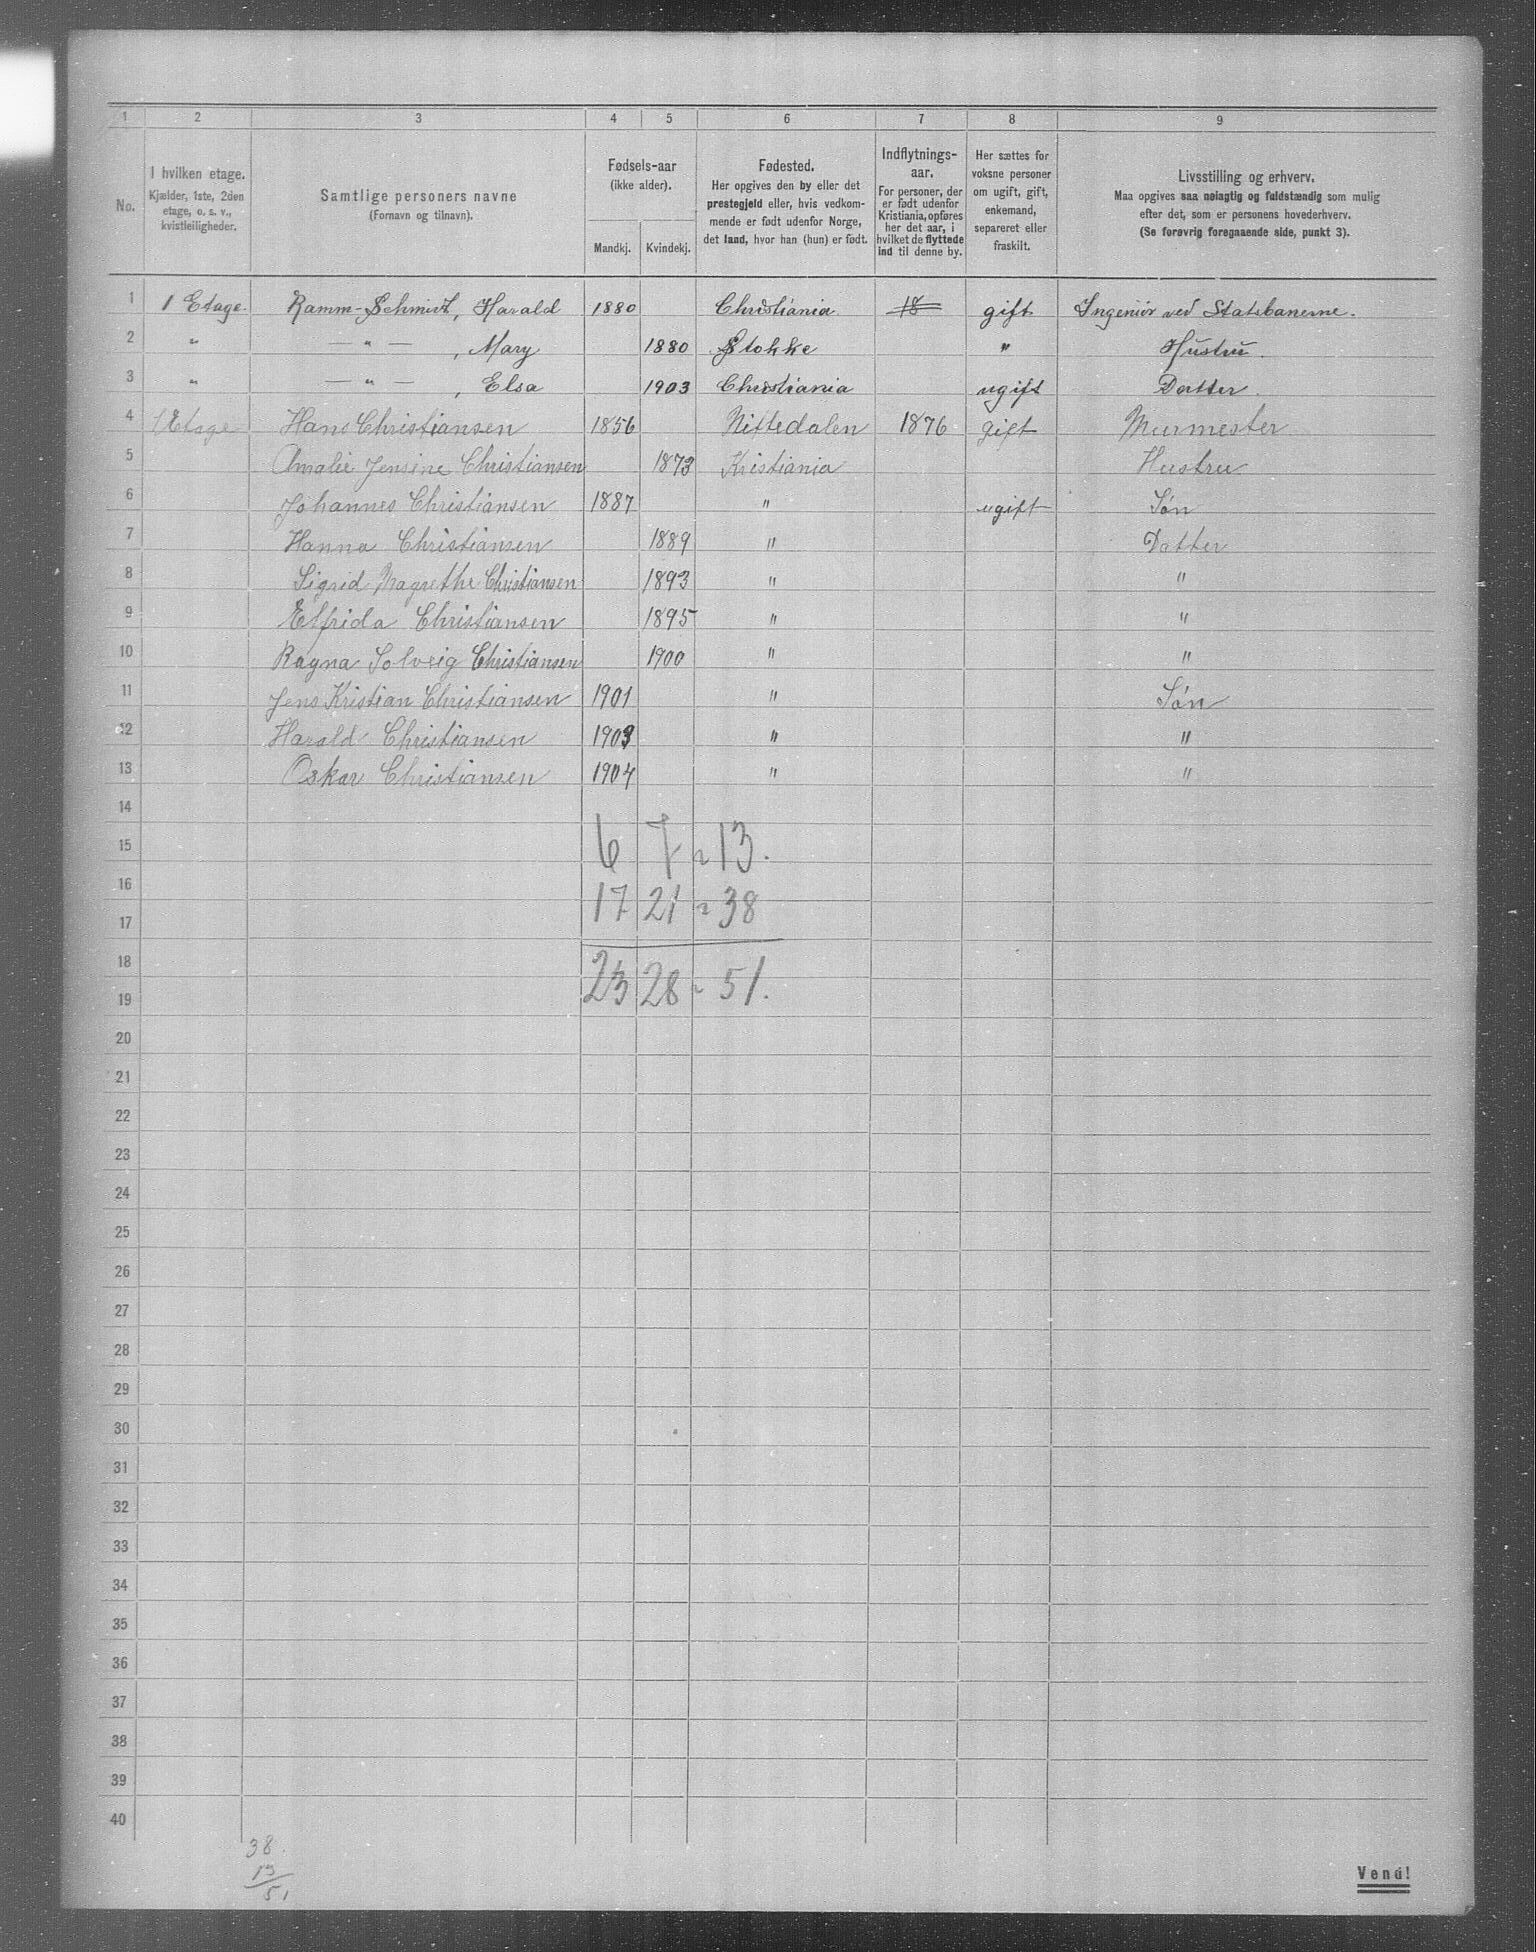 1 2 3 4 5 6 7 8 9
No. | I hvilken etage. Kjælder, 1ste, 2den etage, o. s. v., kvistleiligheder. | Samtlige personers navne (Fornavn og tilnavn). | Fødsels-aar (ikke alder). Mandkj. | Kvindekj. | Fødested. Her opgives den by eller det prestegjeld eller, hvis vedkommende er født udenfor Norge, det land, hvor han (hun) er født. | Indflytnings-aar. For personer, der er født udenfor Kristiania, opføres her det aar, i hvilket de flyttede ind til denne by. | Her sættes for voksne personer om ugift, gift, enkemand, separeret eller fraskilt. | Livsstilling og erhverv. Maa opgives saa nøiagtig og fuldstændig som mulig efter det, som er personens hovederhverv. (Se forøvrig foregaaende side, punkt 3).
1 1 Etage. Ramm-Schmidt, Harald 1880 Christiania 18 gift Ingeniør ved Statsbanerne.
2 " — " — , Mary 1880 Stokke " Hustru.
3 " — " — , Elsa 1903 Christiania ugift Datter.
4 1 Etage Hans Christiansen 1856 Nittedalen 1876 gift Murmester
5 Amalie Jensine Christiansen 1873 Kristiania Hustru
6 Johannes Christiansen 1887 " ugift Søn
7 Hanna Christiansen 1889 " Datter
8 Sigrid Magrethe Christiansen 1893 " "
9 Elfrida Christiansen 1895 " "
10 Ragna Solveig Christiansen 1900 " "
11 Jens Kristian Christiansen 1901 " Søn
12 Harald Christiansen 1903 " "
13 Oskar Christiansen 1904 " "
14
15 6 7 = 13.
16
17 17 21 = 38
18
19 23 28 = 51.
20
21
22
23
24
25
26
27
28
29
30
31
32
33
34
35
36
37
38
39
40
38.
13
51
Vend!